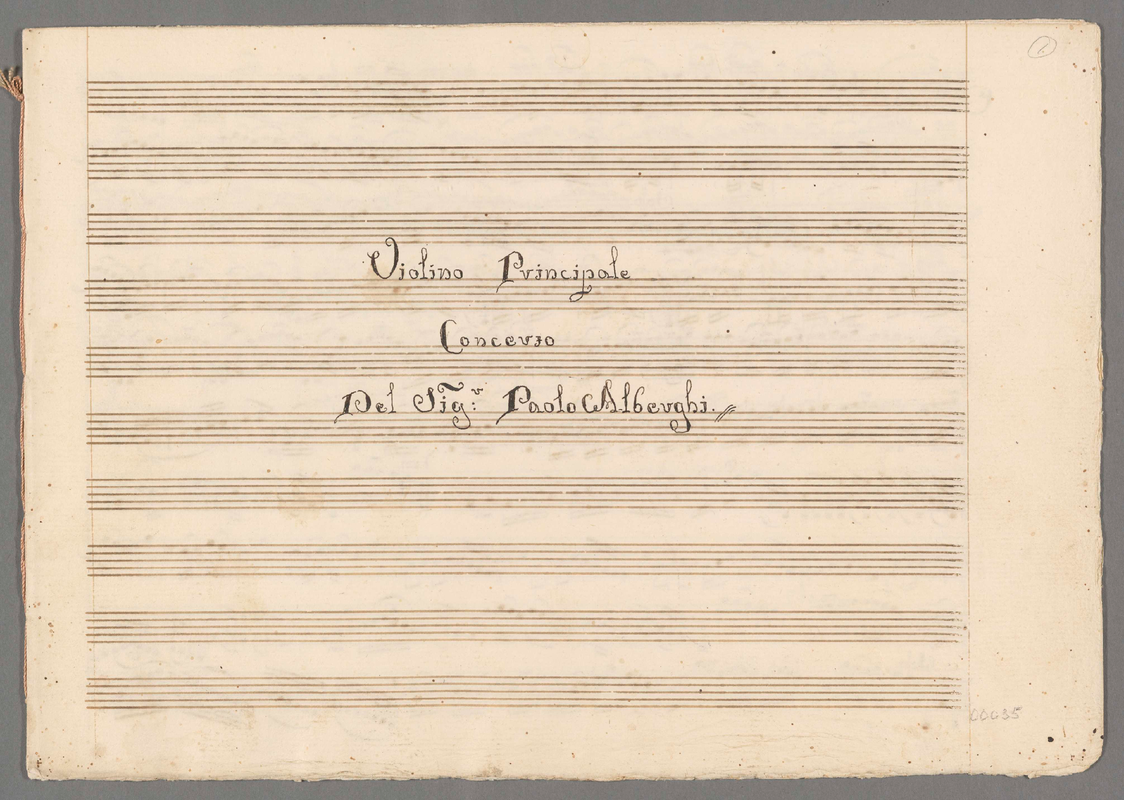 Violino Principale
Concerto
Del Sig.r Paolo Alberghi.